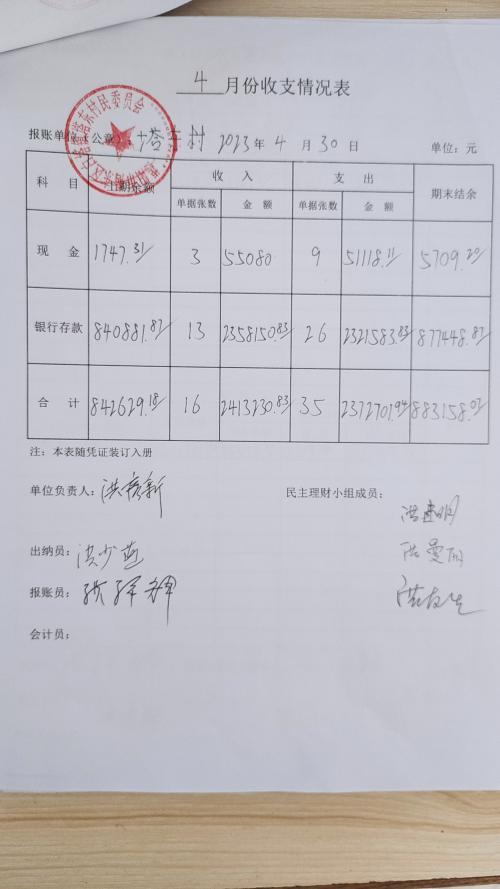 4 月份收支情况表
报账单位（公章）：塔东村 2023 年 4 月 30 日 单位：元
科 目 上期余额 收 入 支 出 期末结余
单据张数 金 额 单据张数 金 额
现 金 1747.31 3 55080 9 51118.11 5709.20
银行存款 840881.87 13 2358150.83 26 2321583.83 877448.87
合 计 842629.18 16 2413230.83 35 2372701.94 883158.07
注：本表随凭证装订入册
单位负责人： 民主理财小组成员：
洪建明
出纳员：洪少燕
洪曼丽
报账员：
洪友生
会计员：